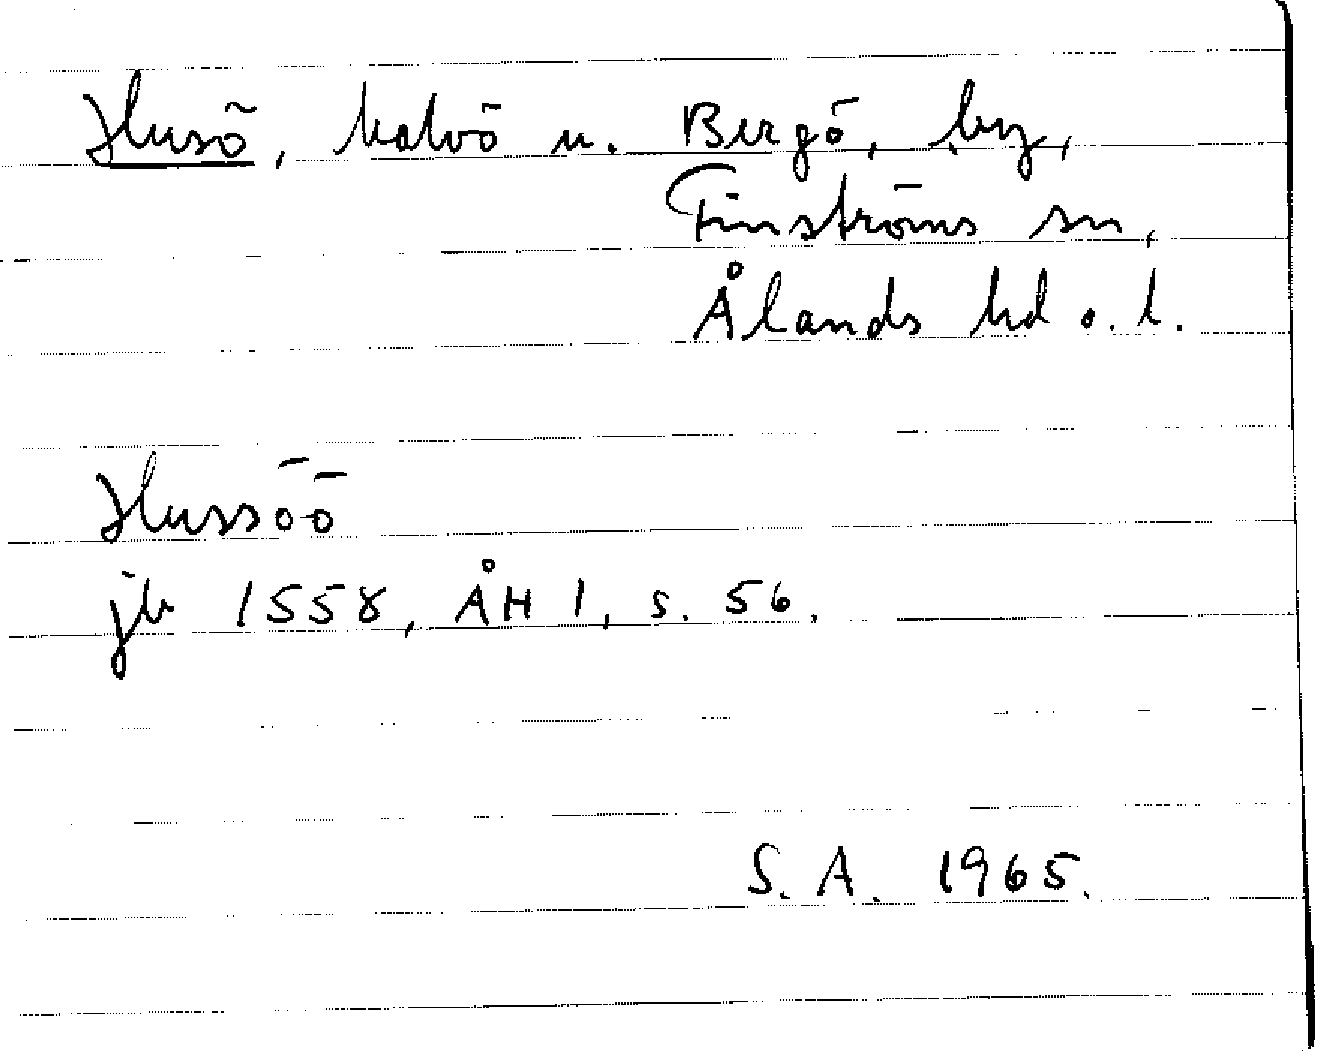 Husö, halvö n. Bergö, by,
Finströms sn,
Ålands hd o. l.
Hussöö
jb 1558, ÅH 1, s. 56.
S. A. 1965.